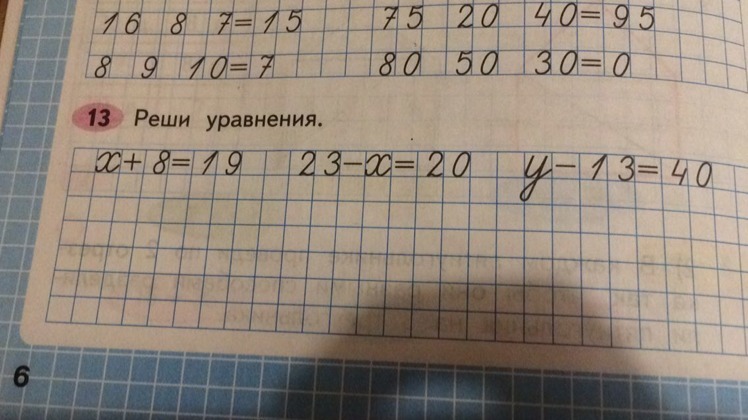 16 8 7=15 75 20 40=95
8 9 10=7 80 50 30=0
13 Реши уравнения.
x+8=19 23-x=20 y-13=40
6